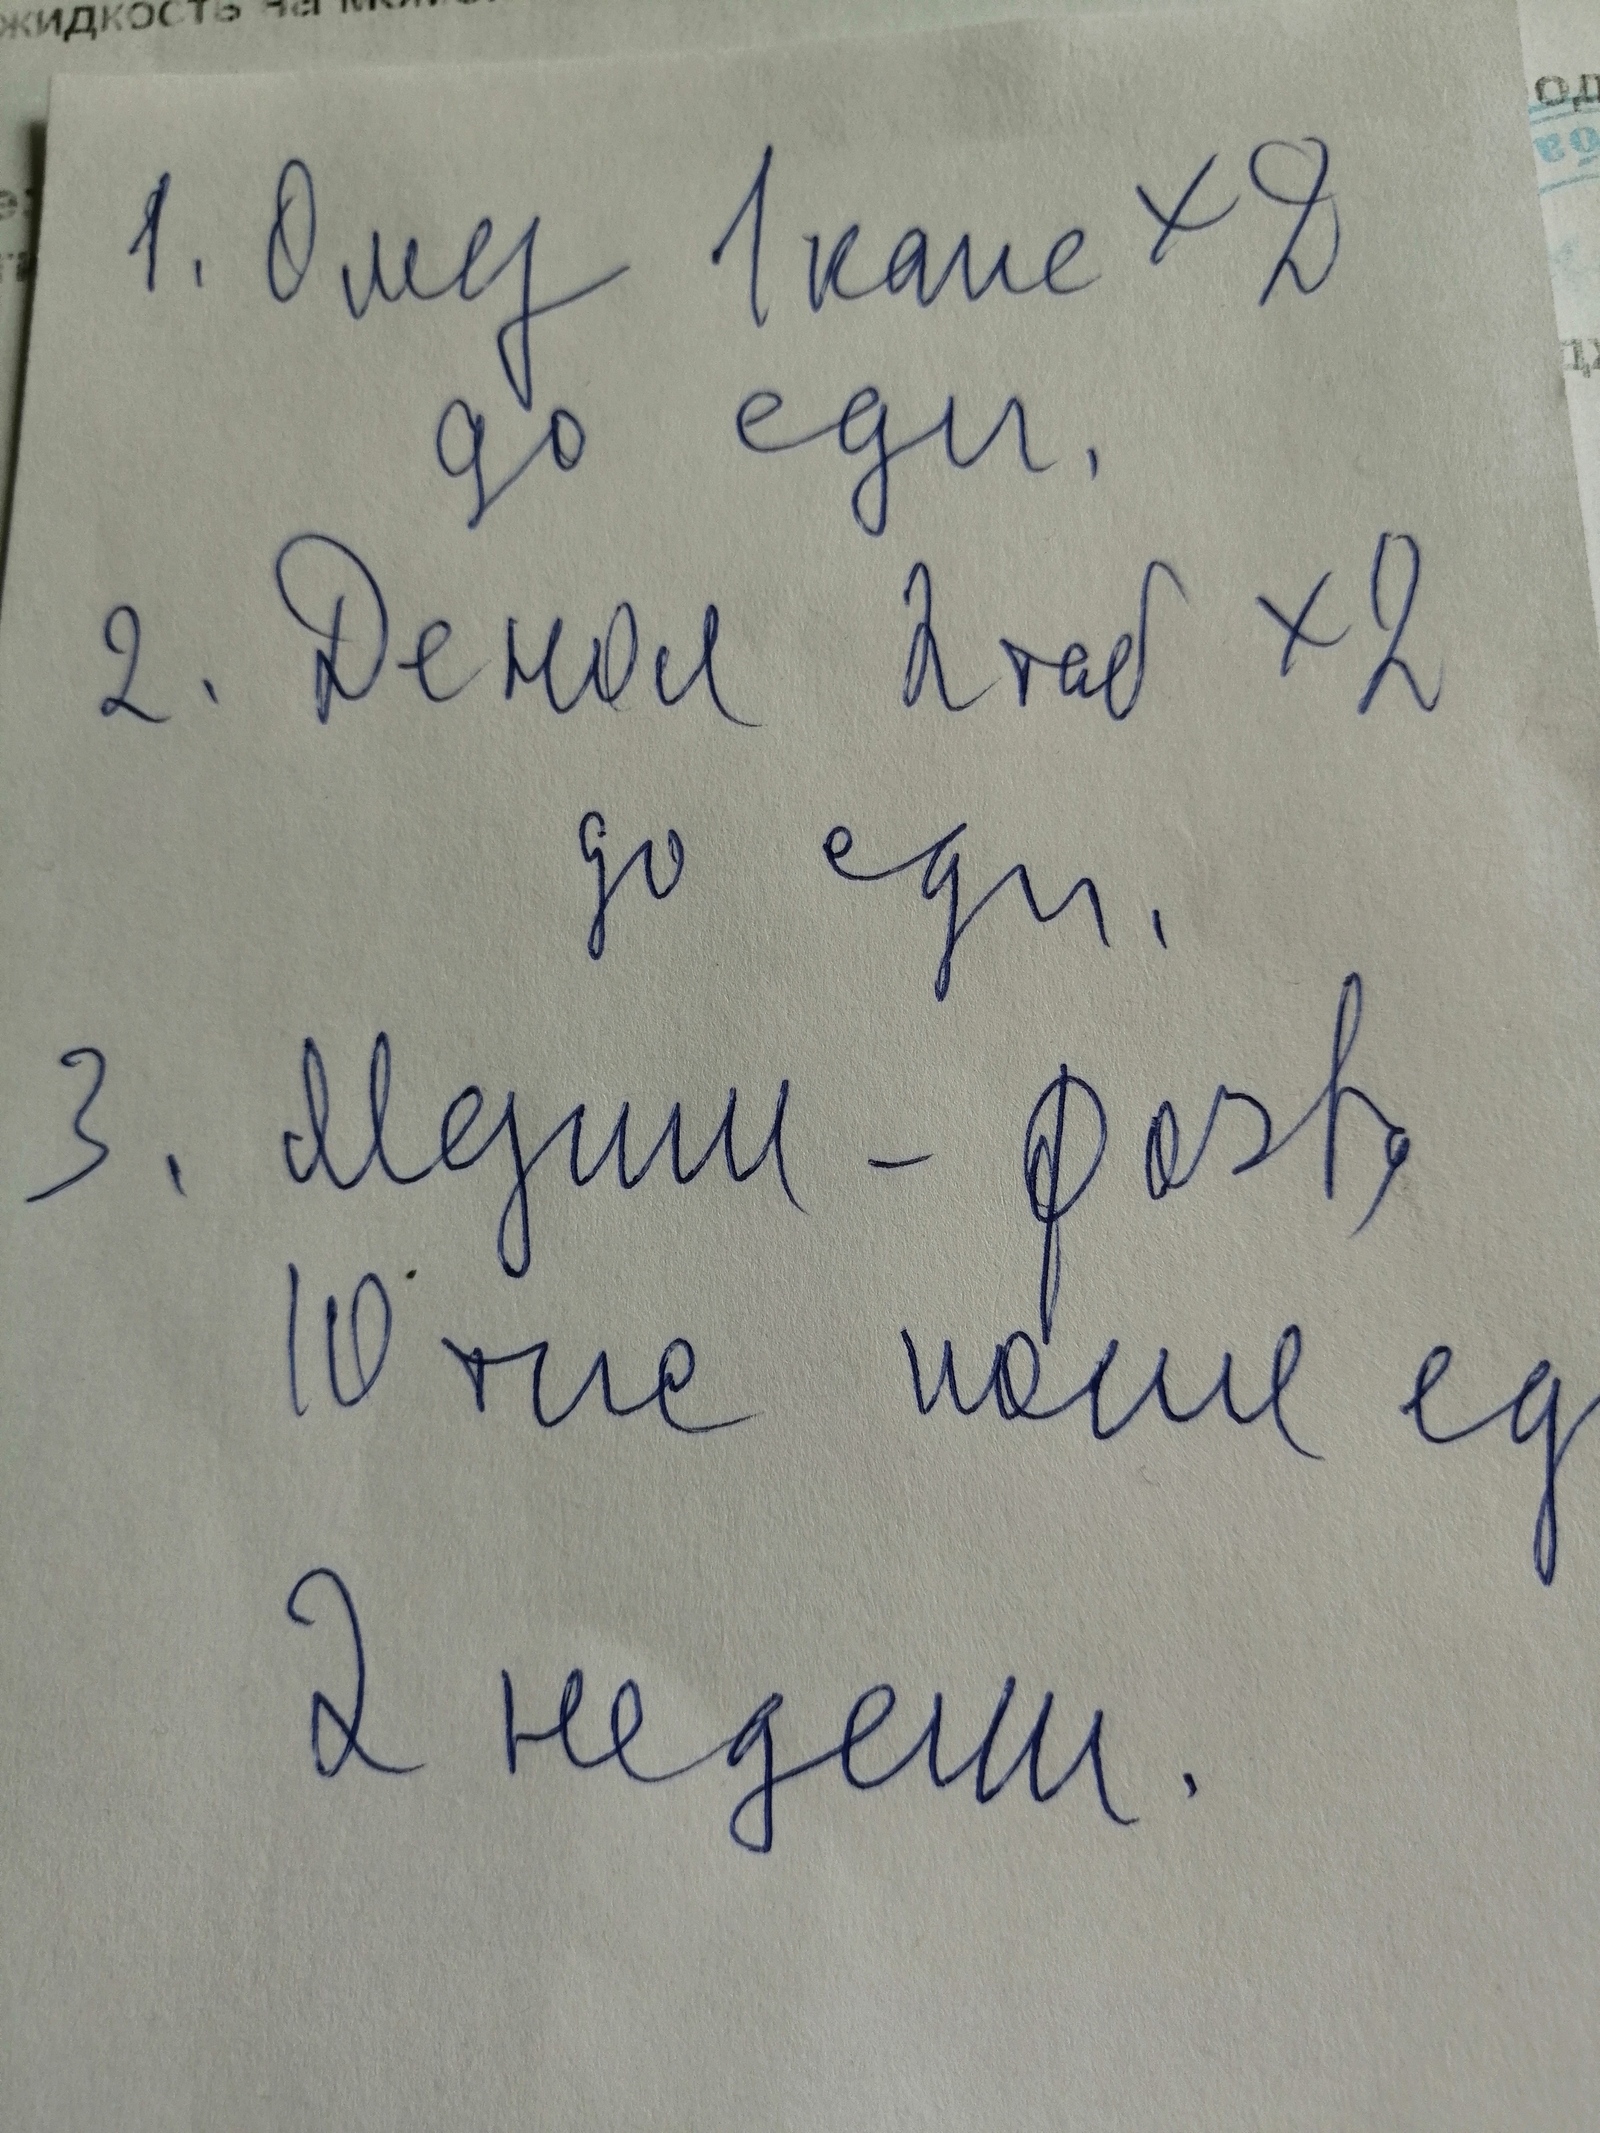 жидкость на
1. Омез 1 капс × 2
до еды.
2. Денол 2 таб × 2
до еды.
3. Мезим - форт,
10 тыс после ед
2 недели.